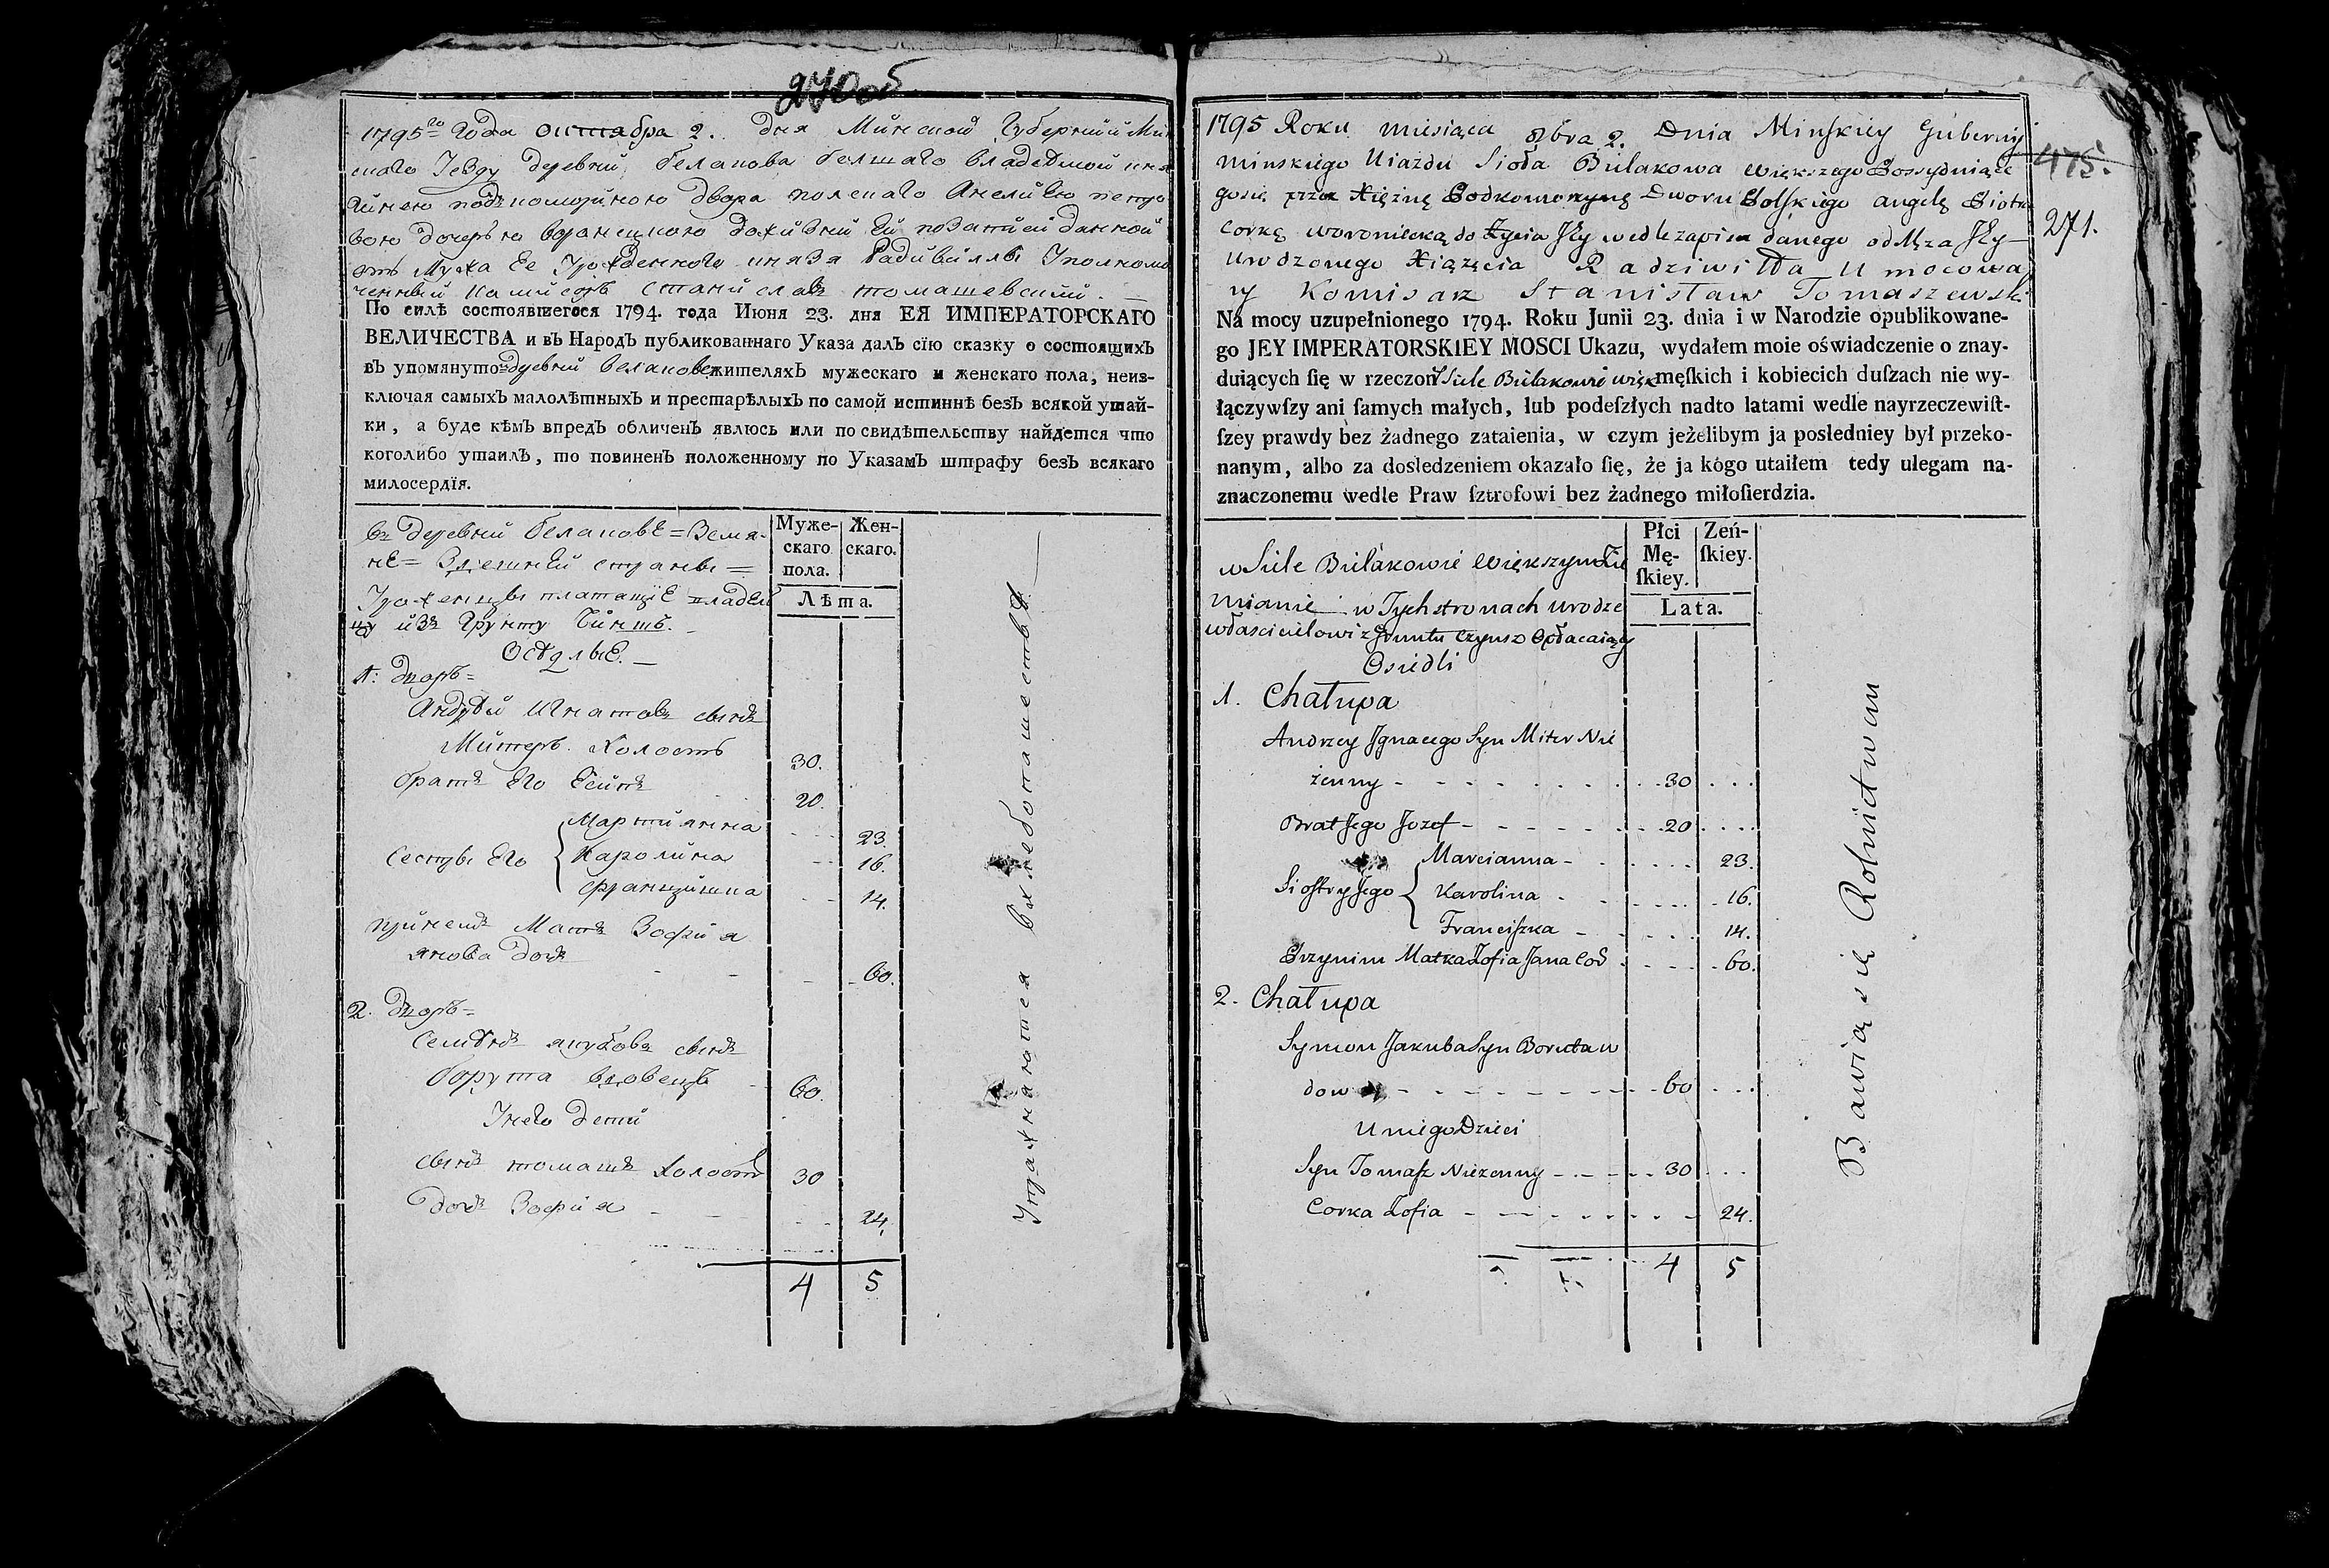 270об
1795го Года октября 2. дня Минской Губернии Мин
скаго Уезду деревни Белакова болшаго владеемой кня
гинею подкомориною двора полскаго Анелиею петро
вою дочерью воронецкою дожизней Ей позаписи данной
отъ Мужа Ее Урожденного князя Радивилла Уполномо
ченный Камисаръ Станиславъ томашевский. —
По силѣ состоявшегося 1794. года Июня 23. дня ЕЯ ИМПЕРАТОРСКАГО
ВЕЛИЧЕСТВА и въ Народъ публикованнаго Указа далъ сїю сказку о состоящихъ
въ упомянутой деревни белакове жителяхъ мужескаго и женскаго пола, неиз-
ключая самыхъ малолѣтныхъ и престарѣлыхъ по самой истиннѣ безъ всякой утай-
ки, а буде кѣмъ впредъ обличенъ явлюсь или по свидѣтельству найдется что
коголибо утаилъ, то повиненъ положенному по Указамъ штрафу безъ всякаго
милосердїя.
въ деревни белаковЕ = Земя-
нЕ = Здешней страны =
Уроженцы платащiЕ владел
цу изъ Грунту Чиншъ. —
ОсѣдлыЕ. —
Муже-
скаго
пола.
Жен-
скаго.
Лѣта.
1: дворъ =
Андрей Игнатовъ сынъ
Митеръ. Холостъ 30.
братъ Его Есипъ 20.
Сестры Его { Мартиянна 23.
Каролина 16.
Францишка 14.
принемъ Мать Зофия
янова дочь 60.
2. дворъ =
Семѣнъ якубовъ сынъ
борута вдовецъ 60.
Унего дети
сынъ томашъ Холостъ 30
дочь Зофия 24.
4 5
Упражнаются вхлебопашествѣ —
1795 Roku miesiąca 8bra 2. Dnia Minſkiey Gubernij
Minskiego Uiazdu Sioła Bułakowa większego Possyduiące
gosię przez Xiężnę Podkomorzynę Dworu Polſkiego angelę Piotra
Corkę woroniecką do Życia Jſzy wedle zapisu danego od Męża Jey —
Urodzonego Xiążęcia Radziwiłła Umocowa
ny Komisarz Stanisław Tomaszewski
475.
271.
Na mocy uzupełnionego 1794. Roku Junii 23. dnia i w Narodzie opublikowane-
go JEY IMPERATORSKIEY MOSCI Ukazu, wydałem moie oświadczenie o znay-
duiących ſię w rzeczon Siele Bułakowie więk męſkich i kobiecich duſzach nie wy-
łączywſzy ani ſamych małych, lub podeſzłych nadto latami wedle nayrzeczewiſt-
ſzey prawdy bez żadnego zataienia, w czym jeżelibym ja posledniey był przeko-
nanym, albo za dosledzeniem okazało ſię, że ja kogo utaiłem tedy ulegam na-
znaczonemu wedle Praw ſztrofowi bez żadnego miłoſierdzia.
w Siele Bułakowie Większym Zie
mianie w Tych stronach urodze
właścicielowi z Gruntu Czynsz Opłacaiący
Osiedli
Płci
Mę-
ſkiey.
Zeń-
ſkiey.
Lata.
1. Chałupa
Andrzey Jgnacego Syn Miter Nie
żenny 30
Brat Jego Jozef 20
Sioſtry Jego { Marcianna 23.
Karolina 16.
Franciſzka 14.
Przynim Matka Zofia Jana Cor 60.
2. Chałupa
Symon Jakuba Syn Boruta w
dow 60
U niego Dzieci
Syn Tomaſz Nieżenny 30
Corka Zofia 24.
4 5
Bawią się Rolnictwem